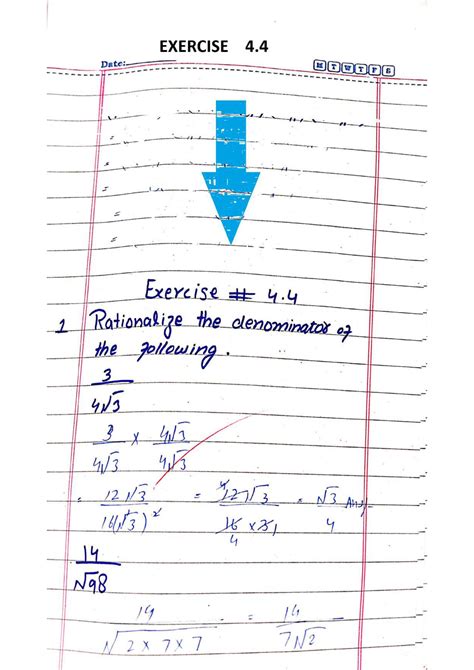 EXERCISE 4.4
Date:
M T W T F S
Exercise # 4.4
1 Rationalize the denominator of
the following.
3
4√3
3 × 4√3
4√3 4√3
= 12√3 = 12√3 = √3 Ans
16(√3)² 16 × 3 4
4
14
√98
14 = 14
√2×7×7 7√2